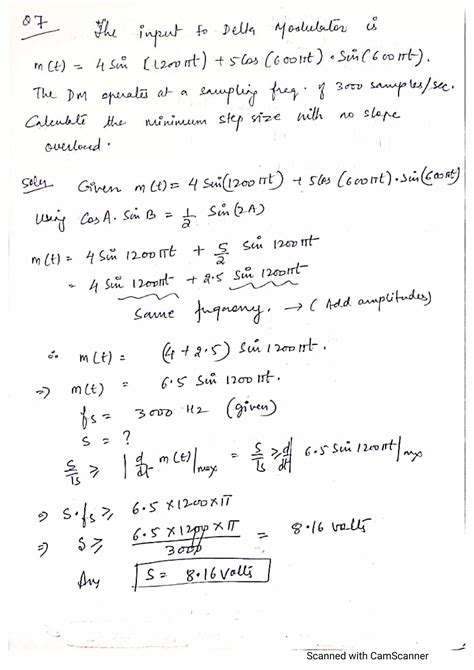 Q7 The input to Delta Modulator is
m(t) = 4 Sin (1200πt) + 5 Cos (600πt) · Sin (600πt).
The DM operates at a sampling freq. of 3000 samples/sec.
Calculate the minimum step size with no slope
overload.
Soln Given m(t) = 4 Sin(1200πt) + 5 Cos (600πt) · Sin(600πt)
Using Cos A. Sin B = 1/2 Sin (2A)
m(t) = 4 Sin 1200πt + 5/2 Sin 1200πt
= 4 Sin 1200πt + 2.5 Sin 1200πt
Same frquency. → (Add amplitudes)
∴ m(t) = (4+2.5) Sin 1200πt.
⇒ m(t) = 6.5 Sin 1200πt.
fs = 3000 Hz (given)
S = ?
S/Ts ≥ |d/dt m(t)|max = S/Ts ≥ d/dt| 6.5 Sin 1200πt|max
⇒ S·fs ≥ 6.5 × 1200 × π
⇒ S ≥ 6.5 × 1200 × π / 3000 = 8.16 volts
Ans S = 8.16 Volts
Scanned with CamScanner